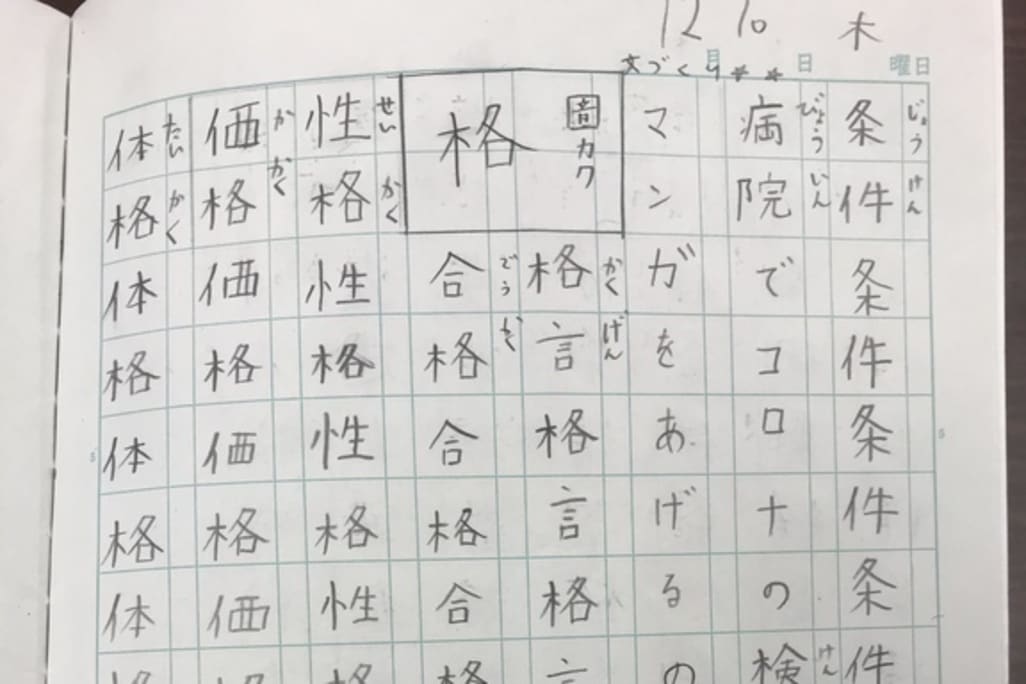 12 10 木
月 日 曜日
文づくり**
条件条件条件条件
じょうけん
病院でコロナの検
びょういん けん
マンガをあげるの
格 音カク
格言格言格言
かくげん
合格合格合格
ごうかく
性格性格性格性格
せいかく
価格価格価格価格
かかく
体格体格体格体格
たいかく
5
5